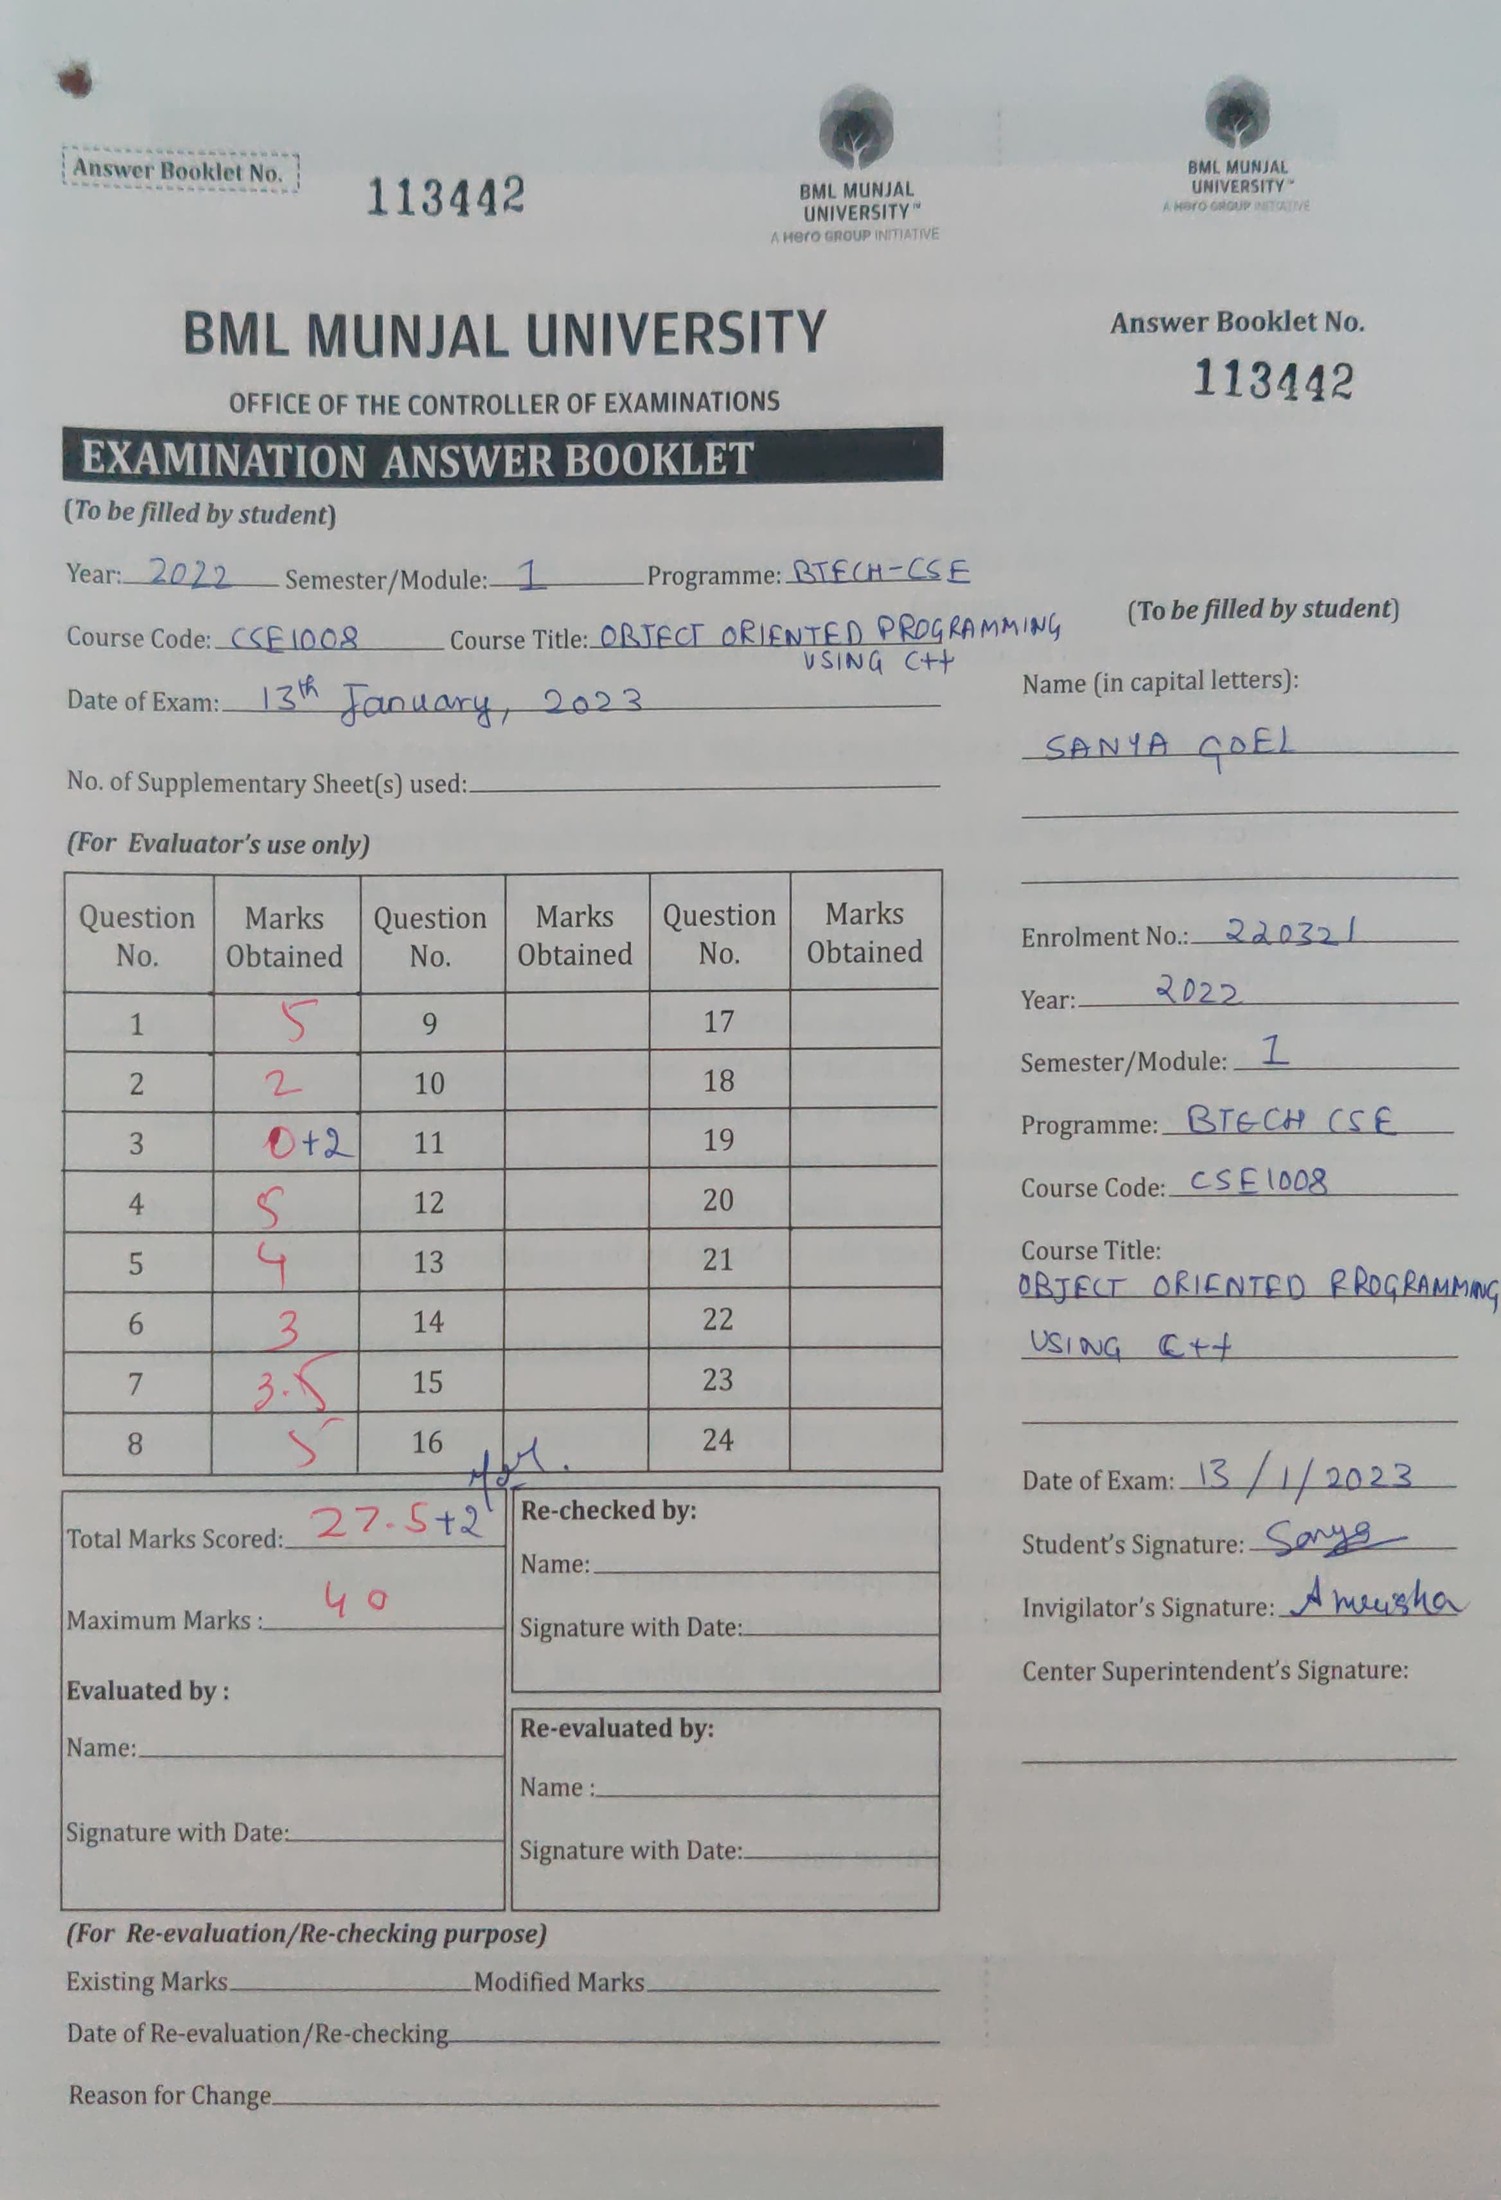 Answer Booklet No.
113442
BML MUNJAL
UNIVERSITY™
A Hero GROUP INITIATIVE
BML MUNJAL
UNIVERSITY™
A Hero GROUP INITIATIVE
BML MUNJAL UNIVERSITY
OFFICE OF THE CONTROLLER OF EXAMINATIONS
EXAMINATION ANSWER BOOKLET
(To be filled by student)
Year: 2022 Semester/Module: 1 Programme: BTECH-CSE
Course Code: CSE1008 Course Title: OBJECT ORIENTED PROGRAMMING
USING C++
Date of Exam: 13th January, 2023
No. of Supplementary Sheet(s) used:
(For Evaluator's use only)
Question No. Marks Obtained Question No. Marks Obtained Question No. Marks Obtained
1 5 9 17
2 2 10 18
3 0+2 11 19
4 5 12 20
5 4 13 21
6 3 14 22
7 3.5 15 23
8 5 16 24
Total Marks Scored: 27.5+2
Maximum Marks : 40
Evaluated by :
Name:
Signature with Date:
Re-checked by:
Name:
Signature with Date:
Re-evaluated by:
Name :
Signature with Date:
(For Re-evaluation/Re-checking purpose)
Existing Marks Modified Marks
Date of Re-evaluation/Re-checking
Reason for Change
Answer Booklet No.
113442
(To be filled by student)
Name (in capital letters):
SANYA GOEL
Enrolment No.: 220321
Year: 2022
Semester/Module: 1
Programme: BTECH CSE
Course Code: CSE1008
Course Title:
OBJECT ORIENTED PROGRAMMING
USING C++
Date of Exam: 13/1/2023
Student's Signature: Sanya
Invigilator's Signature:
Center Superintendent's Signature: